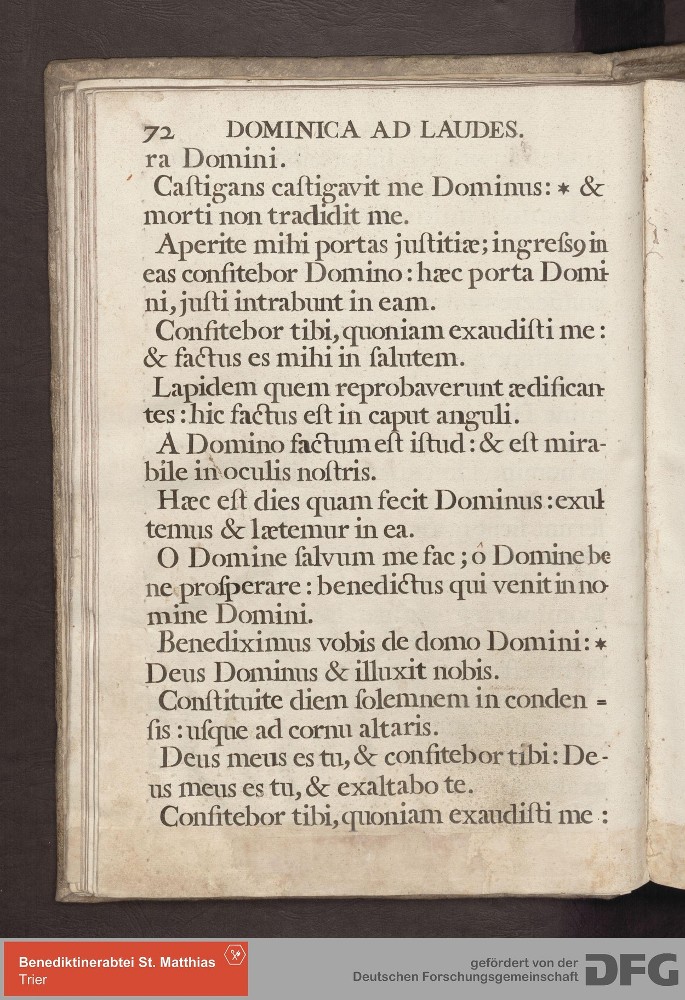 72 DOMINICA AD LAUDES.
ra Domini.
Caſtigans caſtigavit me Dominus: * &
morti non tradidit me.
Aperite mihi portas juſtitiæ; ingreſsꝯ in
eas confitebor Domino: hæc porta Domi-
ni, juſti intrabunt in eam.
Confitebor tibi, quoniam exaudiſti me:
& factus es mihi in ſalutem.
Lapidem quem reprobaverunt ædifican-
tes: hic factus eſt in caput anguli.
A Domino factum eſt iſtud: & eſt mira-
bile in oculis noſtris.
Hæc eſt dies quam fecit Dominus: exul-
temus & lætemur in ea.
O Domine ſalvum me fac; ô Domine be
ne proſperare: benedictus qui venit in no-
mine Domini.
Benediximus vobis de domo Domini: *
Deus Dominus & illuxit nobis.
Conſtituite diem ſolemnem in conden =
ſis: uſque ad cornu altaris.
Deus meus es tu, & confitebor tibi: De-
us meus es tu, & exaltabo te.
Confitebor tibi, quoniam exaudiſti me:
Benediktinerabtei St. Matthias
Trier
gefördert von der
Deutschen Forschungsgemeinschaft DFG